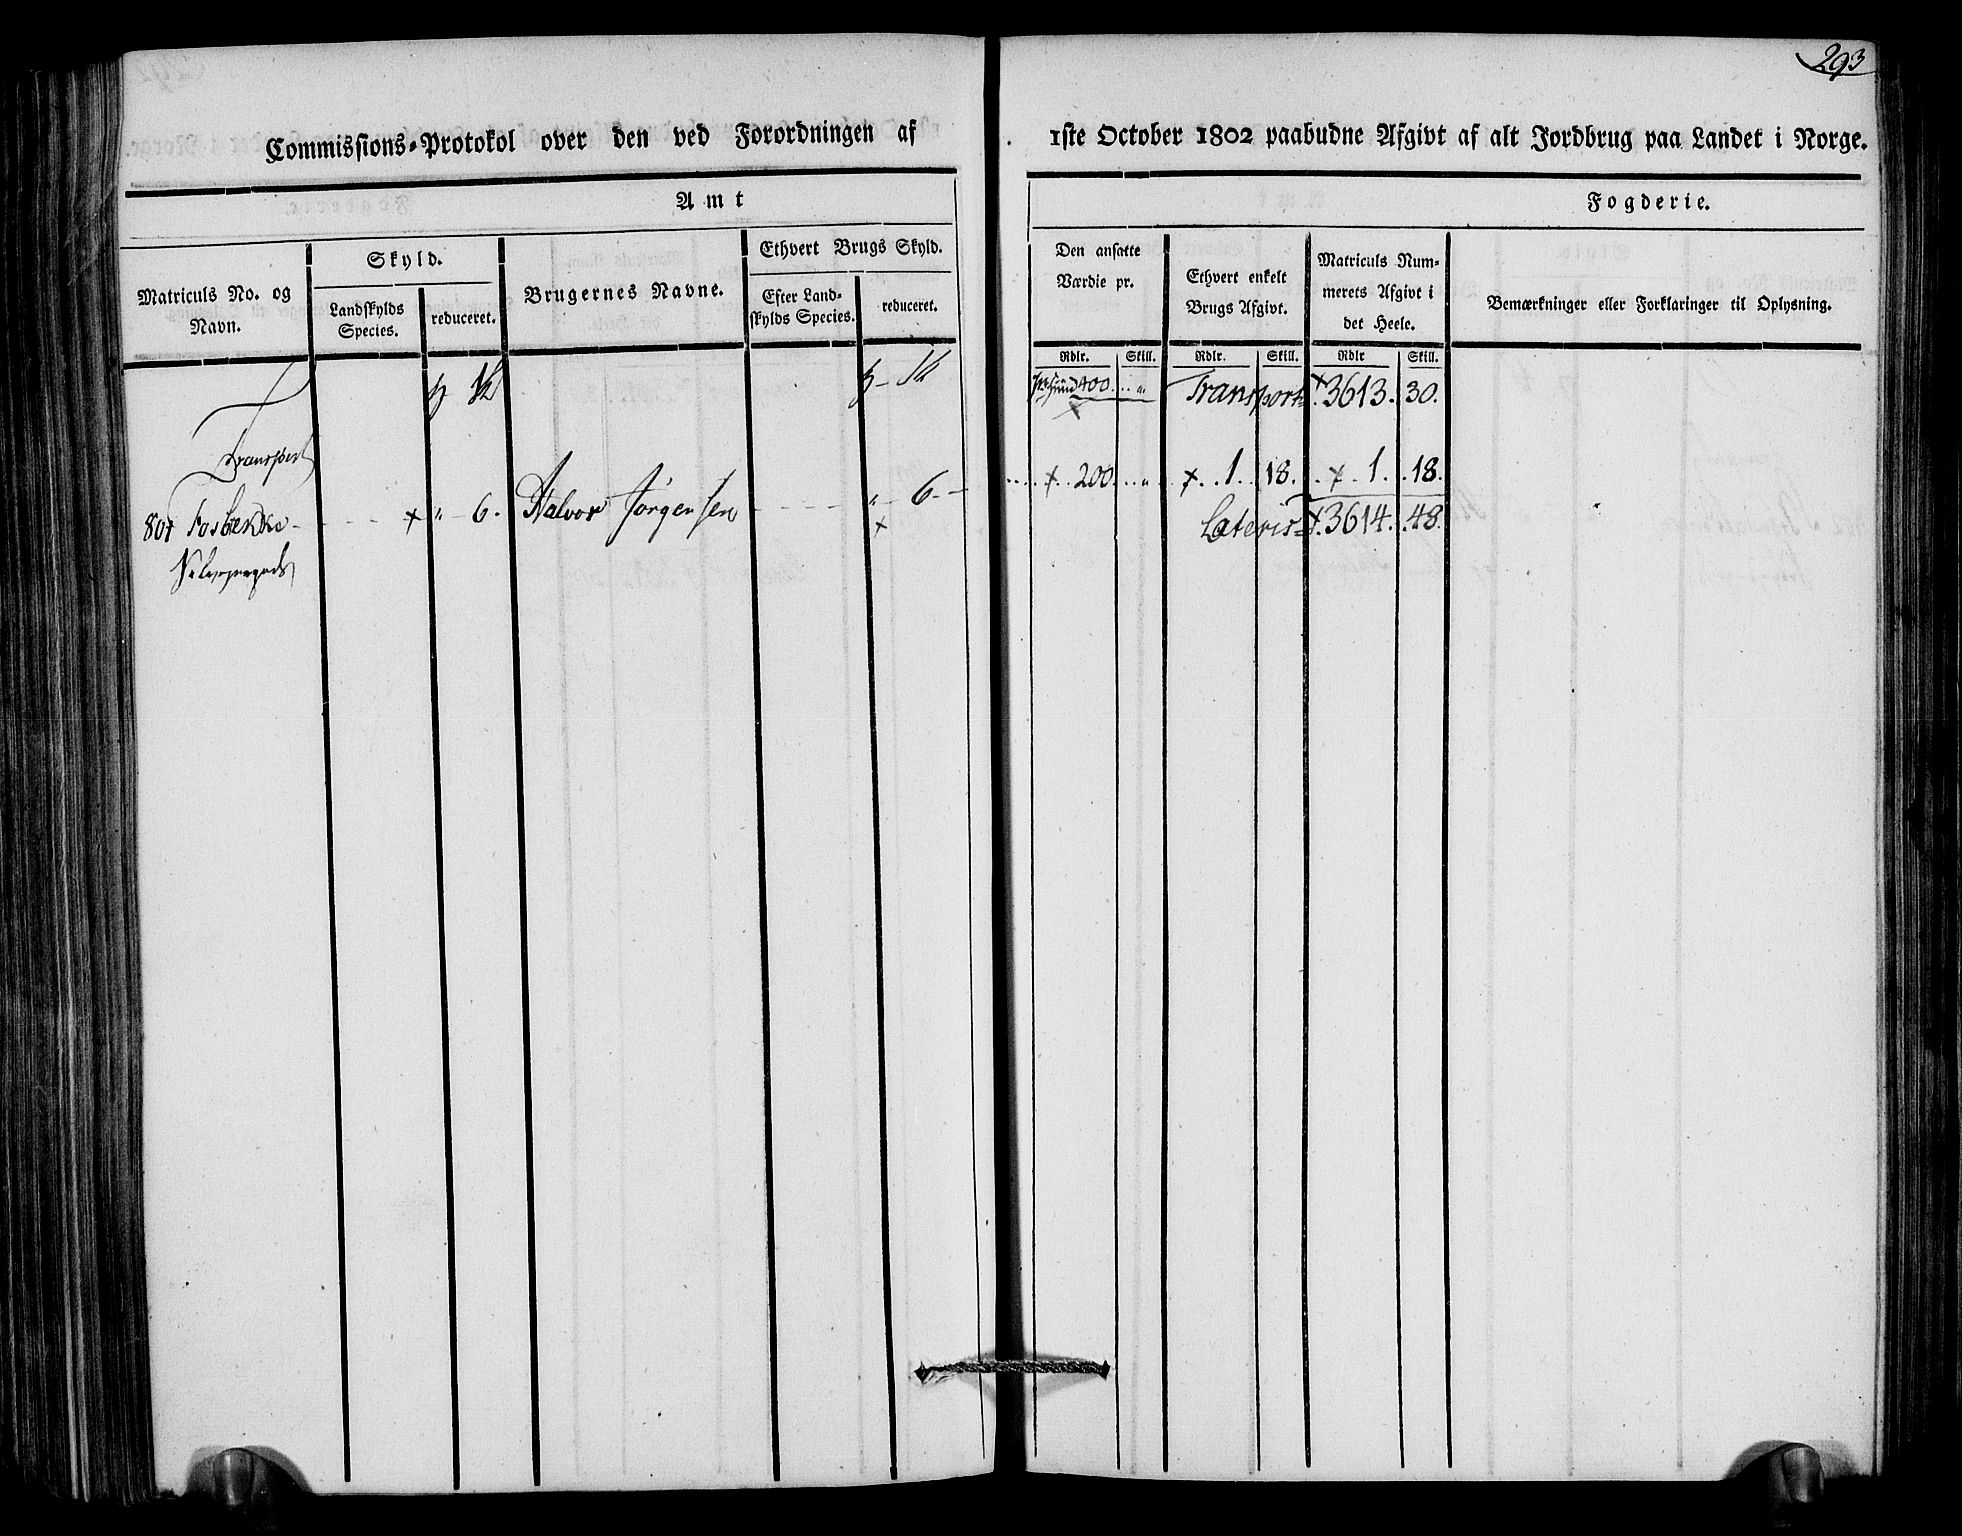 293
Commissions-Protokol over den ved Forordningen af 1ste October 1802 paabudne Afgivt af alt Jordbrug paa Landet i Norge.
Amt
Fogderie.
Matriculs No. og Navn.
Skyld.
Landskylds Species.
reduceret.
Brugernes Navne.
Ethvert Brugs Skyld.
Efter Landskylds Species.
reduceret.
Den ansatte Værdie pr.
Ethvert enkelt Brugs Afgivt.
Matriculs Nummerets Afgivt i det Heele.
Bemærkninger eller Forklaringer til Oplysning.
Rdlr. Skill. Rdlr. Skill. Rdlr Skill.
Transport
400. Transport 3613. 30.
801 Fosbekke 6. Halvor Jørgensen 6 200. 1. 18. 1. 18.
Lateris 3614. 48.